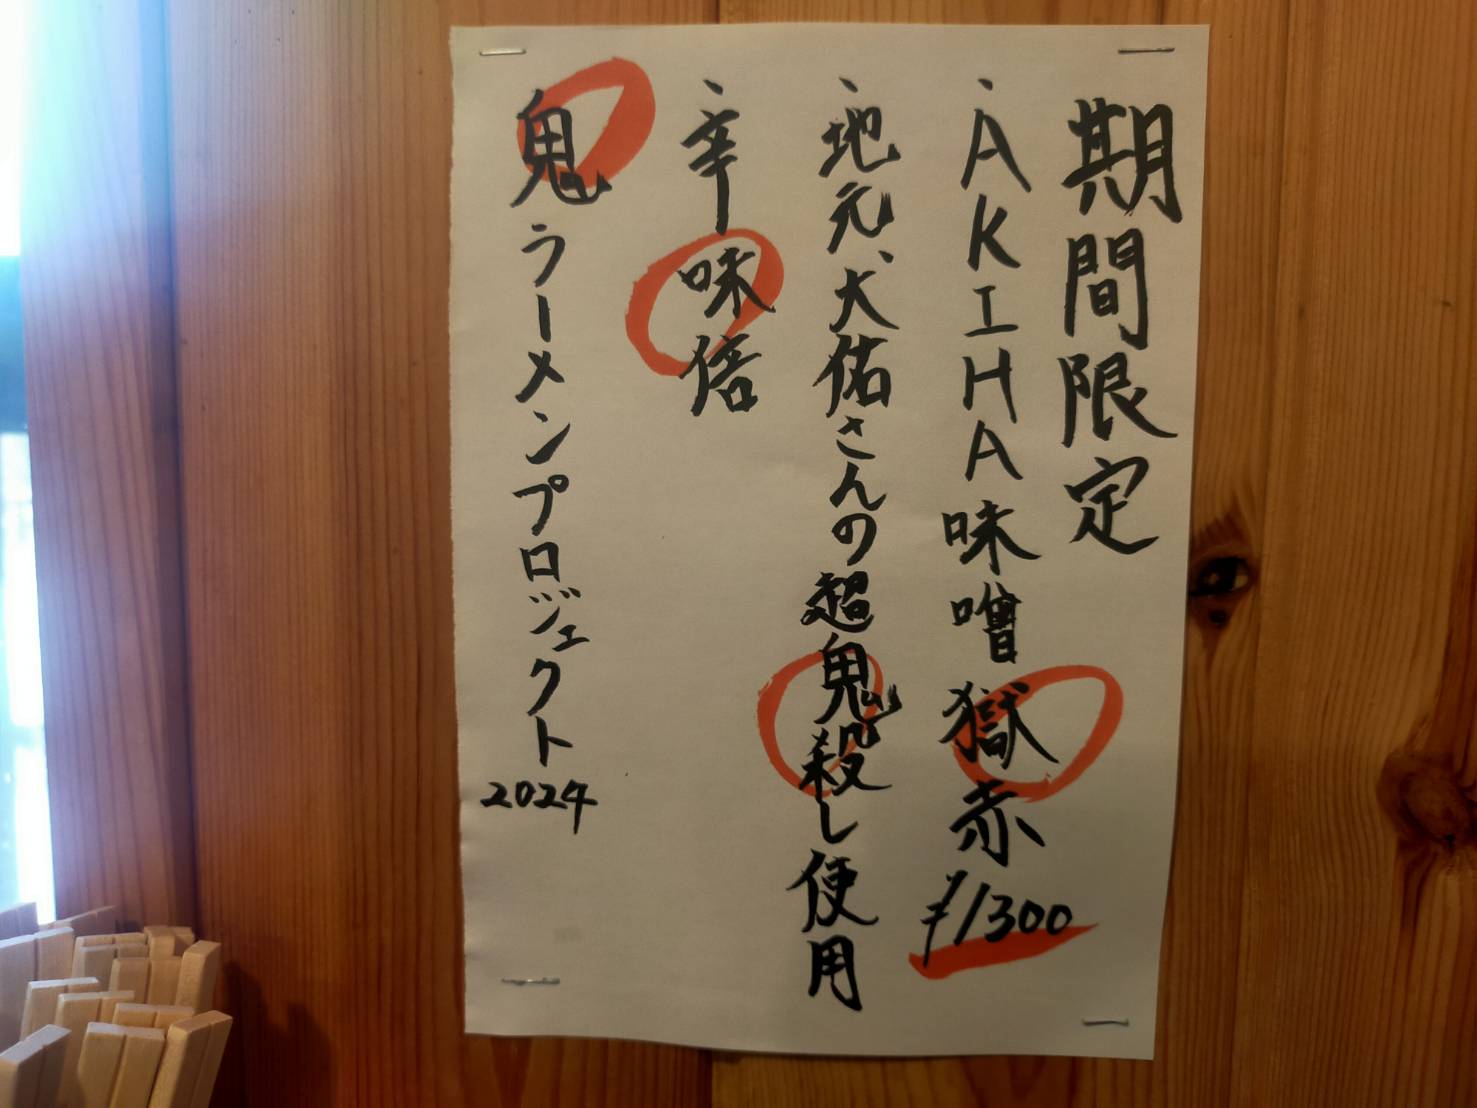 期間限定
・AKIHA味噌獄赤¥1300
・地元、大佑さんの超鬼殺し使用
・辛味倍
鬼ラーメンプロジェクト2024